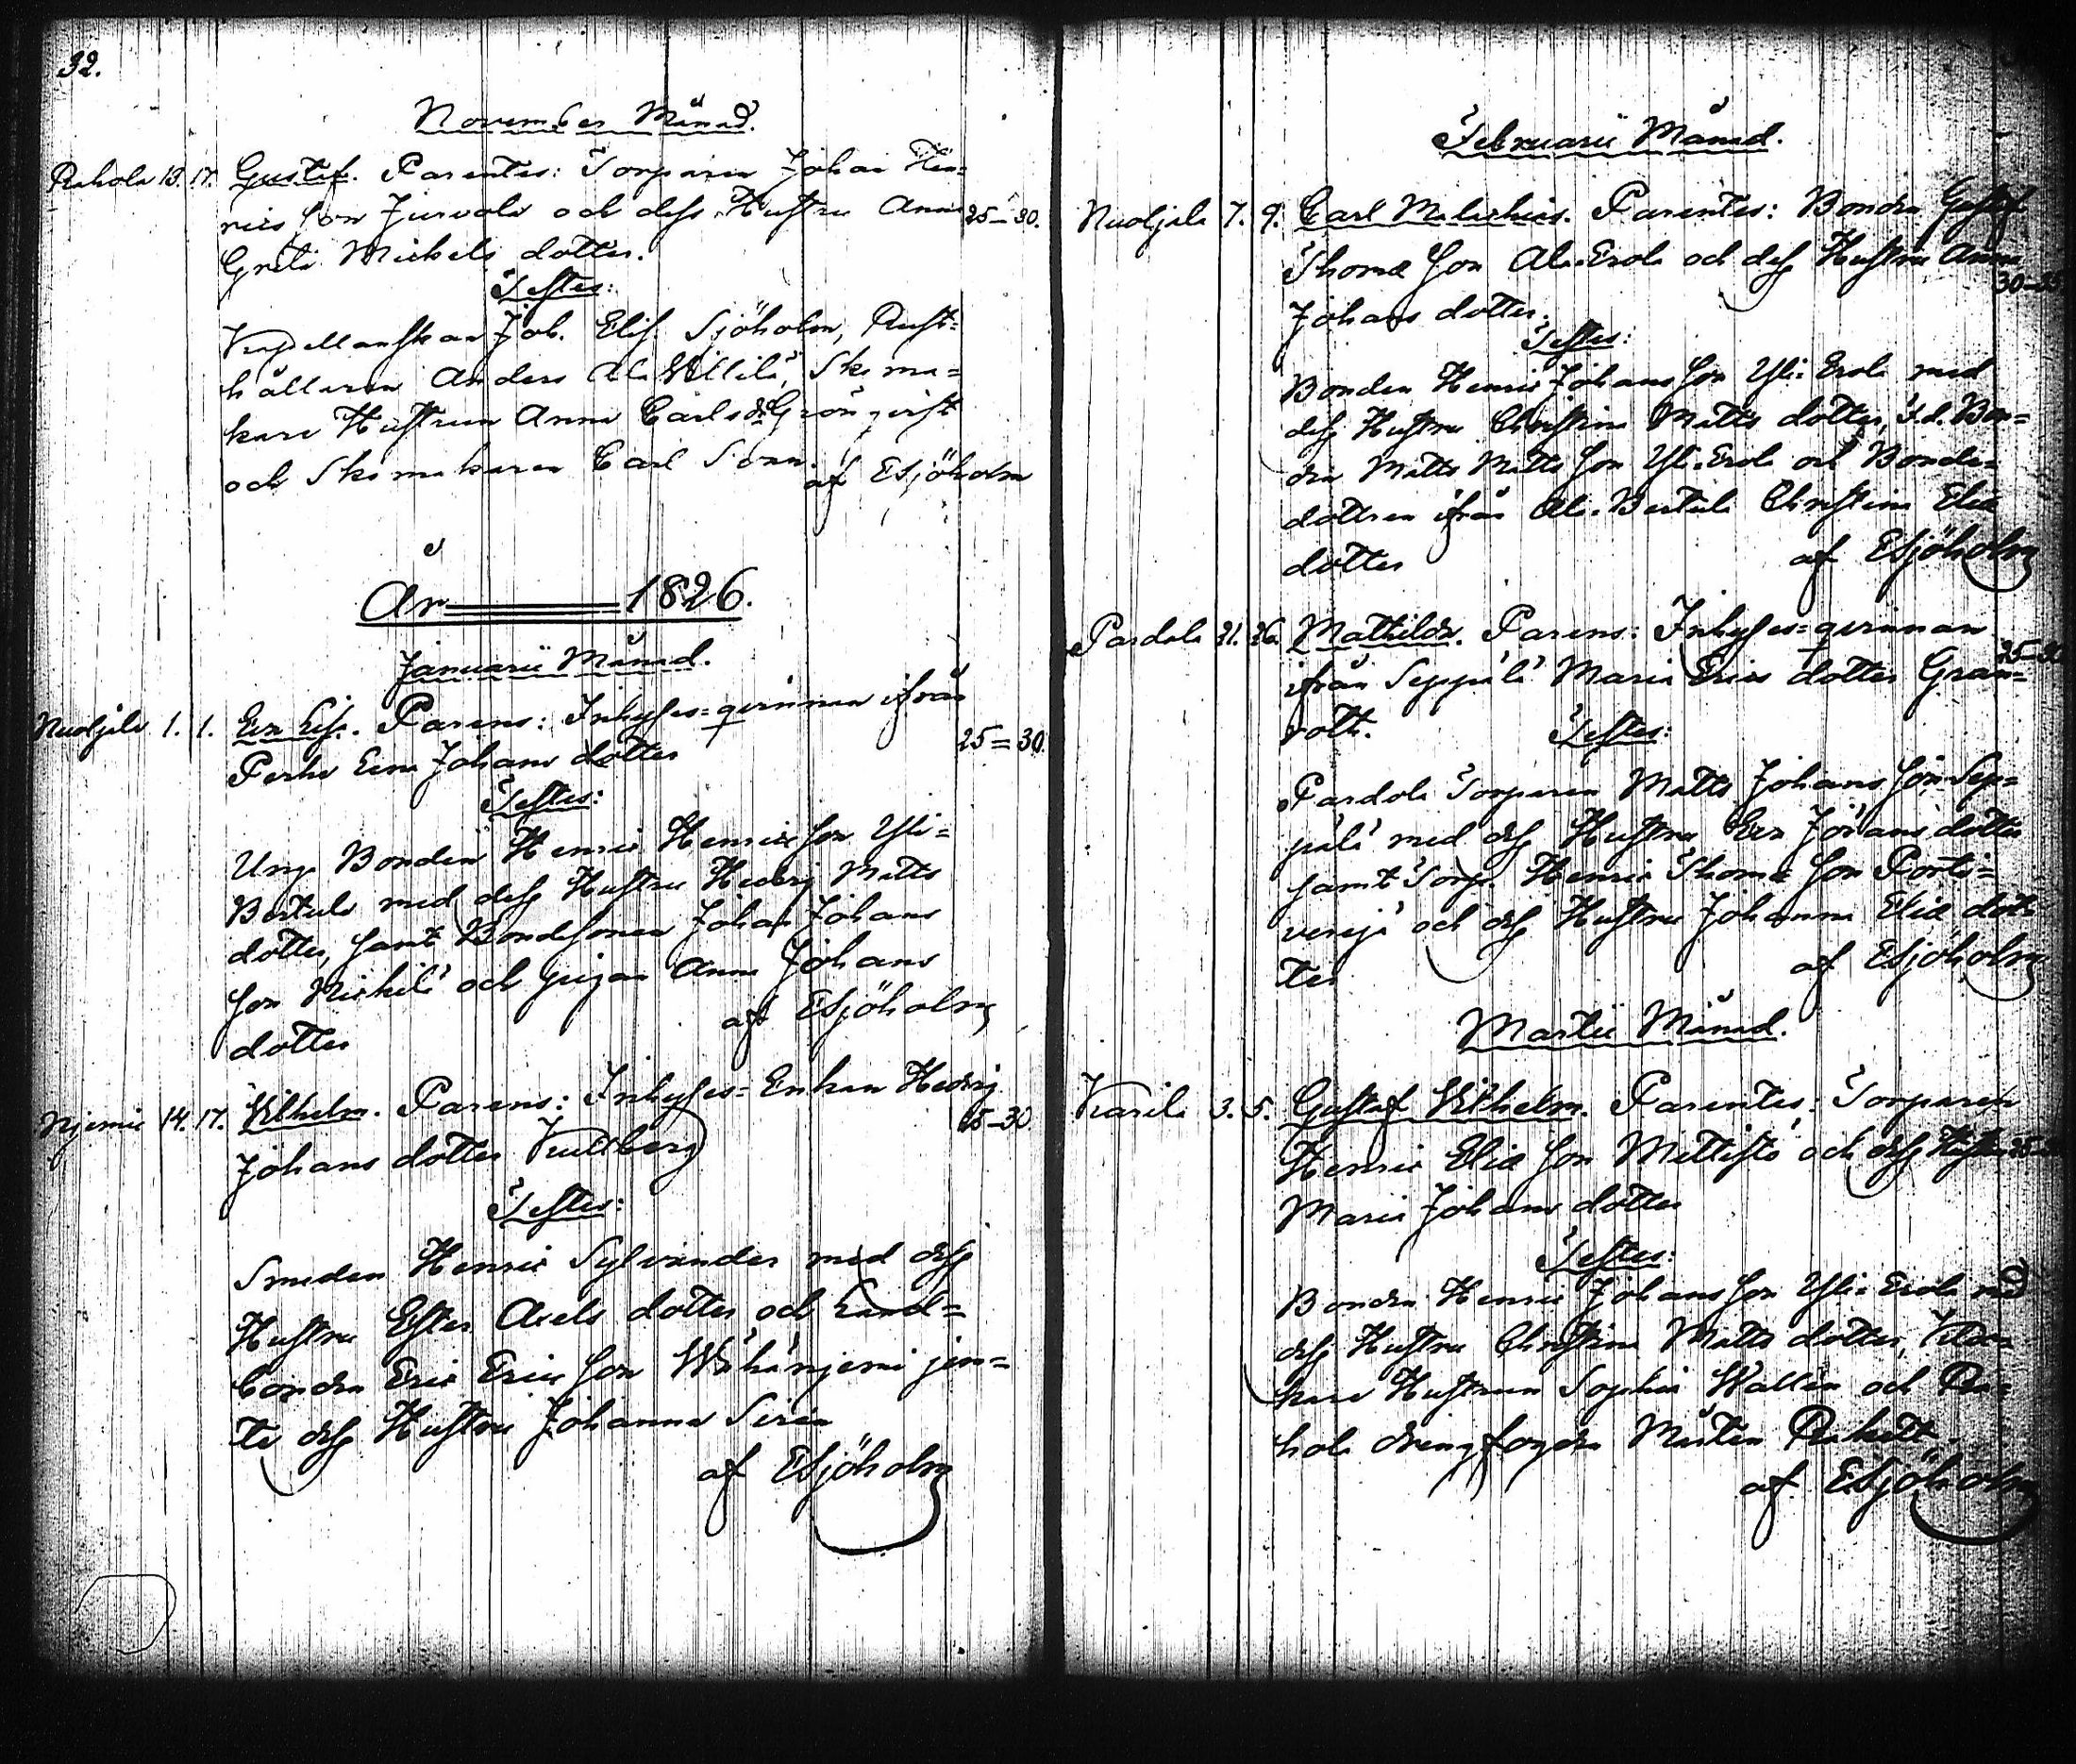 32.
November Månad.
Pukola 13. 17. Gustaf. Parentes: Torparen Johan Hen=
rics son Jurvala och dess Hustru Anna 25–30.
Greta Michels dotter.
Testes:
Joh. Elis. Sjöholm, Rust=
hållaren Anders Ala Willilä, Skoma=
kare Hustrun Anna Carls dr Grönqvist
och Skomakaren Carl
af ESjöholm
År 1826.
Januarii Månad.
Nuoljala 1. 1. Eva Lis. Parens: Inhyses=qvinnan ifrån
Perho Eva Johans dotter 25=30.
Testes:
Unge Bonden Henric Henrics son Yli=
Bertula med dess Hustru Hedvig Matts
dotter, samt Bondesonen Johan Johans
son Mickilä och pigan Anna Johans
dotter af ESjöholm
Njemis 14. 17. Vilhelm. Parens: Inhyses=Enkan Hedvig
Johans dotter 25–30.
Testes:
Smeden Henric Sylvander med dess
Hustru Ester Axels dotter och Land=
bonden Eric Erics son Wähänjemi jem=
te dess Hustru Johanna
af ESjöholm
Februarii Månad.
Nuoljala 7. 9. Carl Malachias. Parentes: Bonden Gustaf
Thomæ son Ala=Erola och dess Hustru Anna
Johans dotter. 30–35
Testes:
Bonden Henric Johans son Yli=Erola med
dess Hustru Christina Matts dotter, f.d. Bon=
den Matts Matts son Yli=Erola och Bonde=
dottren ifrån Ala=Bertula Christina Eliæ
dotter af ESjöholm
Pardola 21. 26. Mathilda. Parens: Inhyses=qvinnan
ifrån Seppälä Maria Erics dotter Gran= 25–30
roth.
Testes:
Pardola Torparen Matts Johans son Sep=
pälä med dess Hustru Eva Johans dotter
samt Torp. Henric Thomæ son Porti=
verejä och dess Hustru Johanna Eliæ dot=
ter af ESjöholm
Martii Månad.
Karila 3. 5. Gustaf Vilhelm. Parentes: Torparen
Henric Eliæ son Mattisto och dess Hustru
Maria Johans dotter
Testes:
Bonden Henric Johans son Yli=Erola med
dess Hustru Christina Matts dotter,
kare Hustrun Sophia Wallen och
hola drengfogden Mårten
af ESjöholm